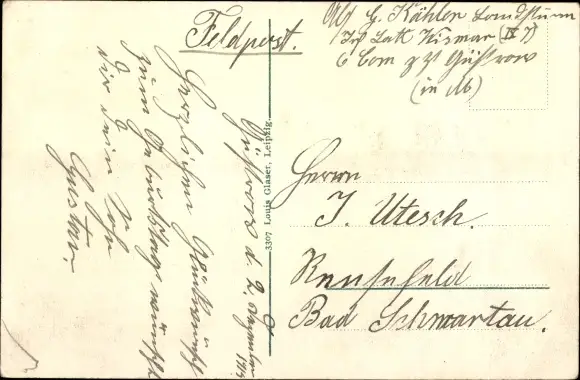 Feldpost.
Abs G. Kählen Landsturm
Inf Batt Wismar (IX 7)
6 Com z Zt Güstrow
(in M)
Güstrow d. 2. Dezember 1915
Herzlichen Glückwunsch
zum Geburtstage wünscht
Dir Dein Sohn
Gustav.
3307 Louis Glaser, Leipzig.
Herrn
J. Utesch.
Rensefeld
Bad Schwartau.